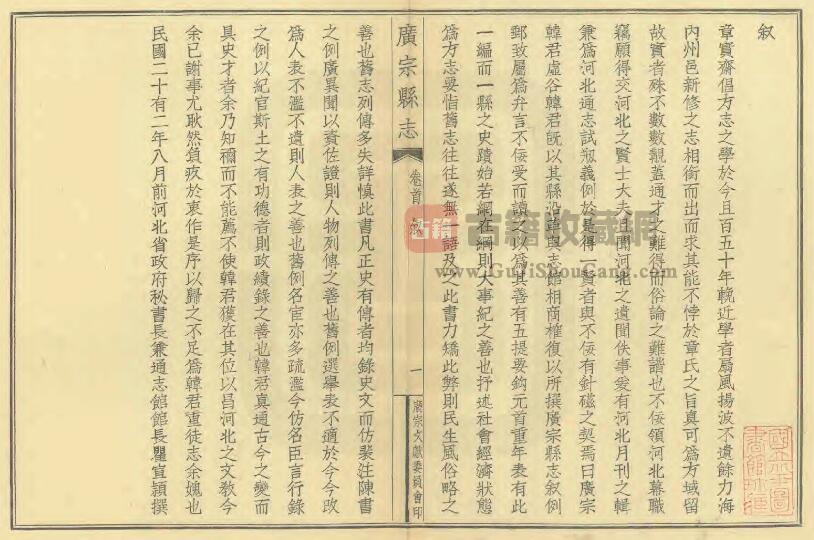 叙
章實齋倡方志之學於今且百五十年輓近學者扇風揚波不遺餘力海
內州邑新修之志相銜而出而求其能不悖於章氏之旨真可為方域留
故實者殊不數數覯蓋通才之難得而俗論之難諧也不佞領河北幕職
竊願得交河北之賢士大夫且聞河北之遺聞佚事爰有河北月刊之輯
兼為河北通志試瓶義例於是得一賢者與不佞有針磁之契焉曰廣宗
韓君虛谷韓君旣以其縣沿革與志館相商榷復以所撰廣宗縣志叙例
郵致屬為弁言不佞受而讀之以為其善有五提要鉤元首重年表有此
一編而一縣之史蹟始若網在綱則大事紀之善也抒述社會經濟狀態
為方志要恉舊志往往遂無一語及之此書力矯此弊則民生風俗略之
廣宗縣志
卷首 叙
一
廣宗文獻委員會印
善也舊志列傳多失詳慎此書凡正史有傳者均錄史文而仿裴注陳書
之例廣異聞以資佐證則人物列傳之善也舊例選舉表不適於今今改
為人表不濫不遺則人表之善也舊例名宦亦多疏濫今仿名臣言行錄
之例以紀官斯土之有功德者則政績錄之善也韓君真通古今之變而
具史才者余乃知禰而不能薦不使韓君獲在其位以昌河北之文教今
余已謝事尤耿然負疚於衷作是序以歸之不足為韓君重徒志余媿也
民國二十有二年八月前河北省政府秘書長兼通志館館長瞿宣穎撰
古籍
古籍收藏網
www.GujiShouCang.com